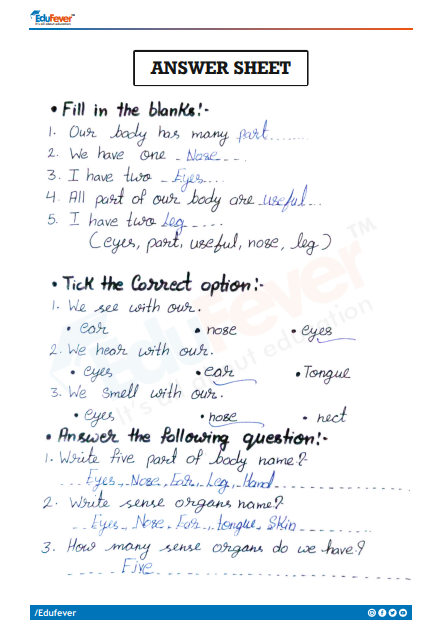 EduFever™
It's all about education
ANSWER SHEET
• Fill in the blanks!-
1. Our body has many part........
2. We have one - Nose....
3. I have two - Eyes...
4. All part of our body are useful...
5. I have two Leg.....
(eyes, part, useful, nose, leg)
• Tick the Correct option!-
1. We see with our.
• ear • nose • eyes
2. We hear with our.
• eyes • ear • Tongue
3. We smell with our.
• eyes • nose • nect
• Answer the following question!-
1. Write five part of body name?
Eyes, Nose, Ear, Leg, Hand
2. Write sense organs name?
Eyes, Nose, Ear, tongue, Skin
3. How many sense organs do we have?
Five
EduFever™
It's all about education
/Edufever